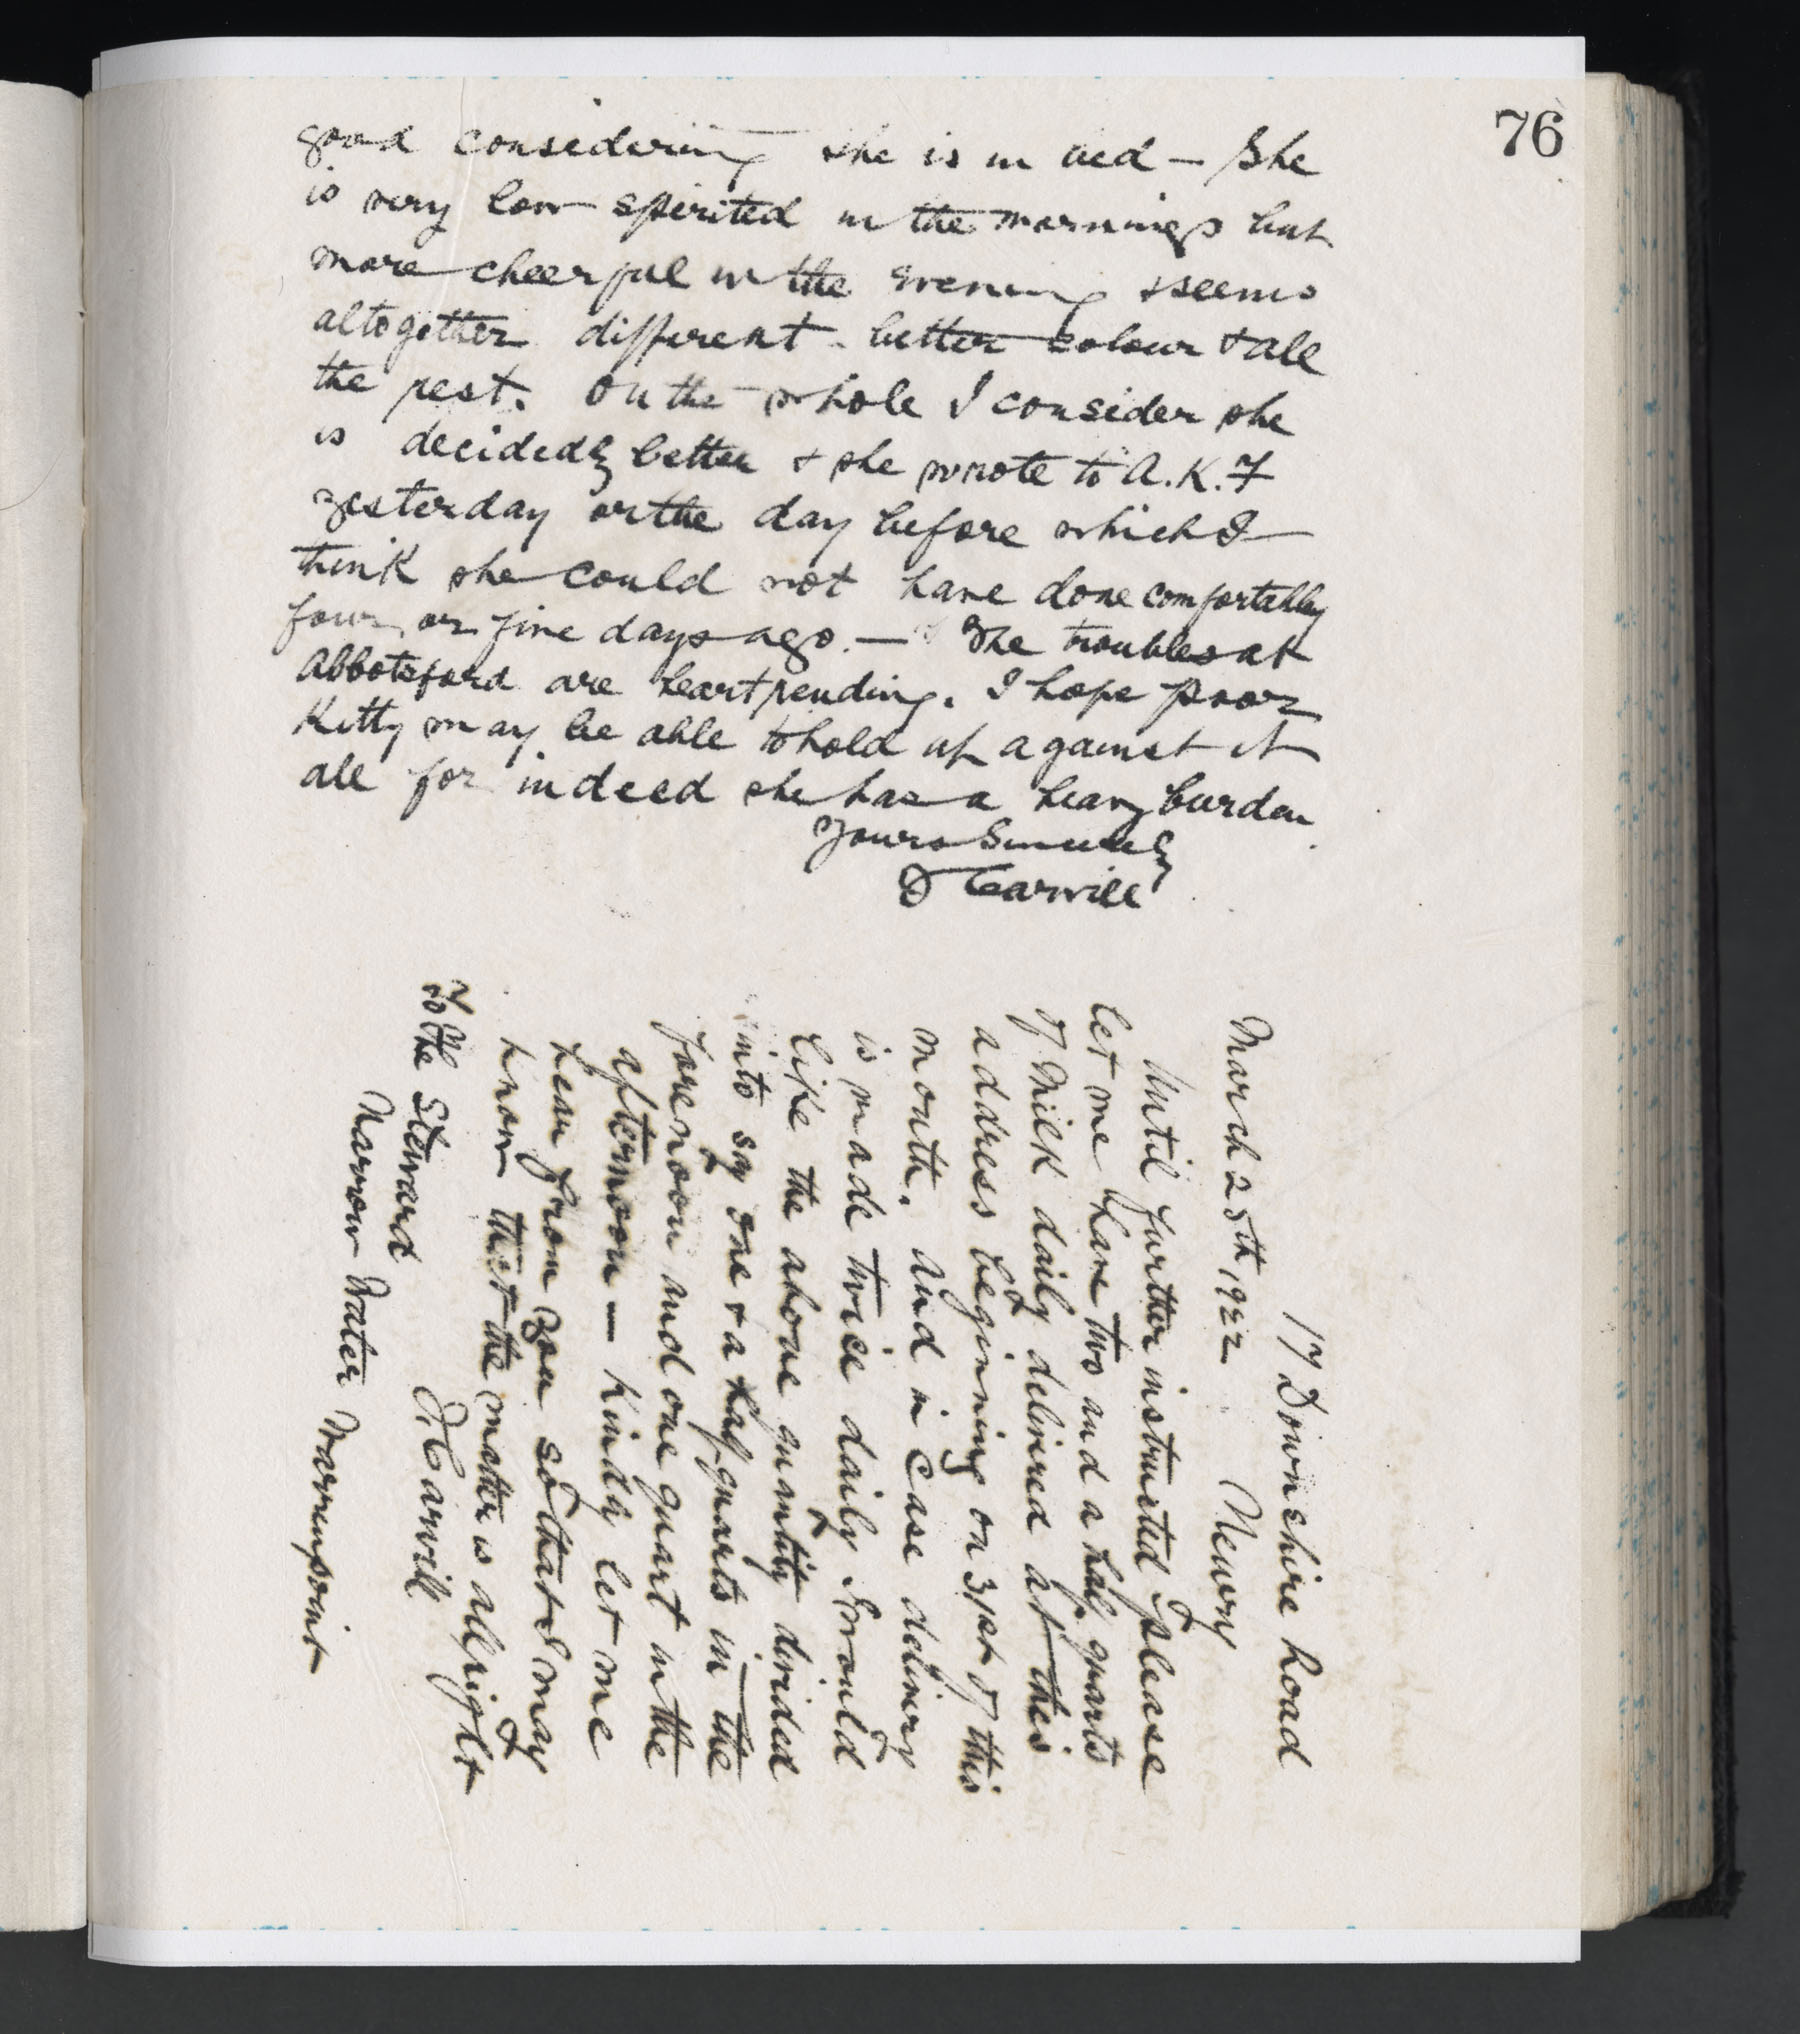 76
good considering she is in bed — She
is very low spirited in the mornings but
more cheerful in the evening & seems
altogether different - better colour & all
the rest. On the whole I consider she
is decidedly better & she wrote to A.K.F
yesterday or the day before which I
think she could not have done comfortably
four or five days ago. — The troubles at
Abbotsford are heartrending. I hope poor
Kitty may be able to hold up against it
all for indeed she has a heavy burden
Yours Sincerely
Carvill
17 Downshire Road
Newry
March 25th 1922
Until further instructed please
let me have two and a half quarts
of Milk daily delivered at this
address beginning on 31st of this
month. And in case delivery
is made twice daily I would
like the above quantity divided
into say one & a half quarts in the
forenoon and one quart in the
afternoon — Kindly let me
hear from you so that I may
know that the matter is all right
Carvill
To The Steward
Narrow Water Warrenpoint